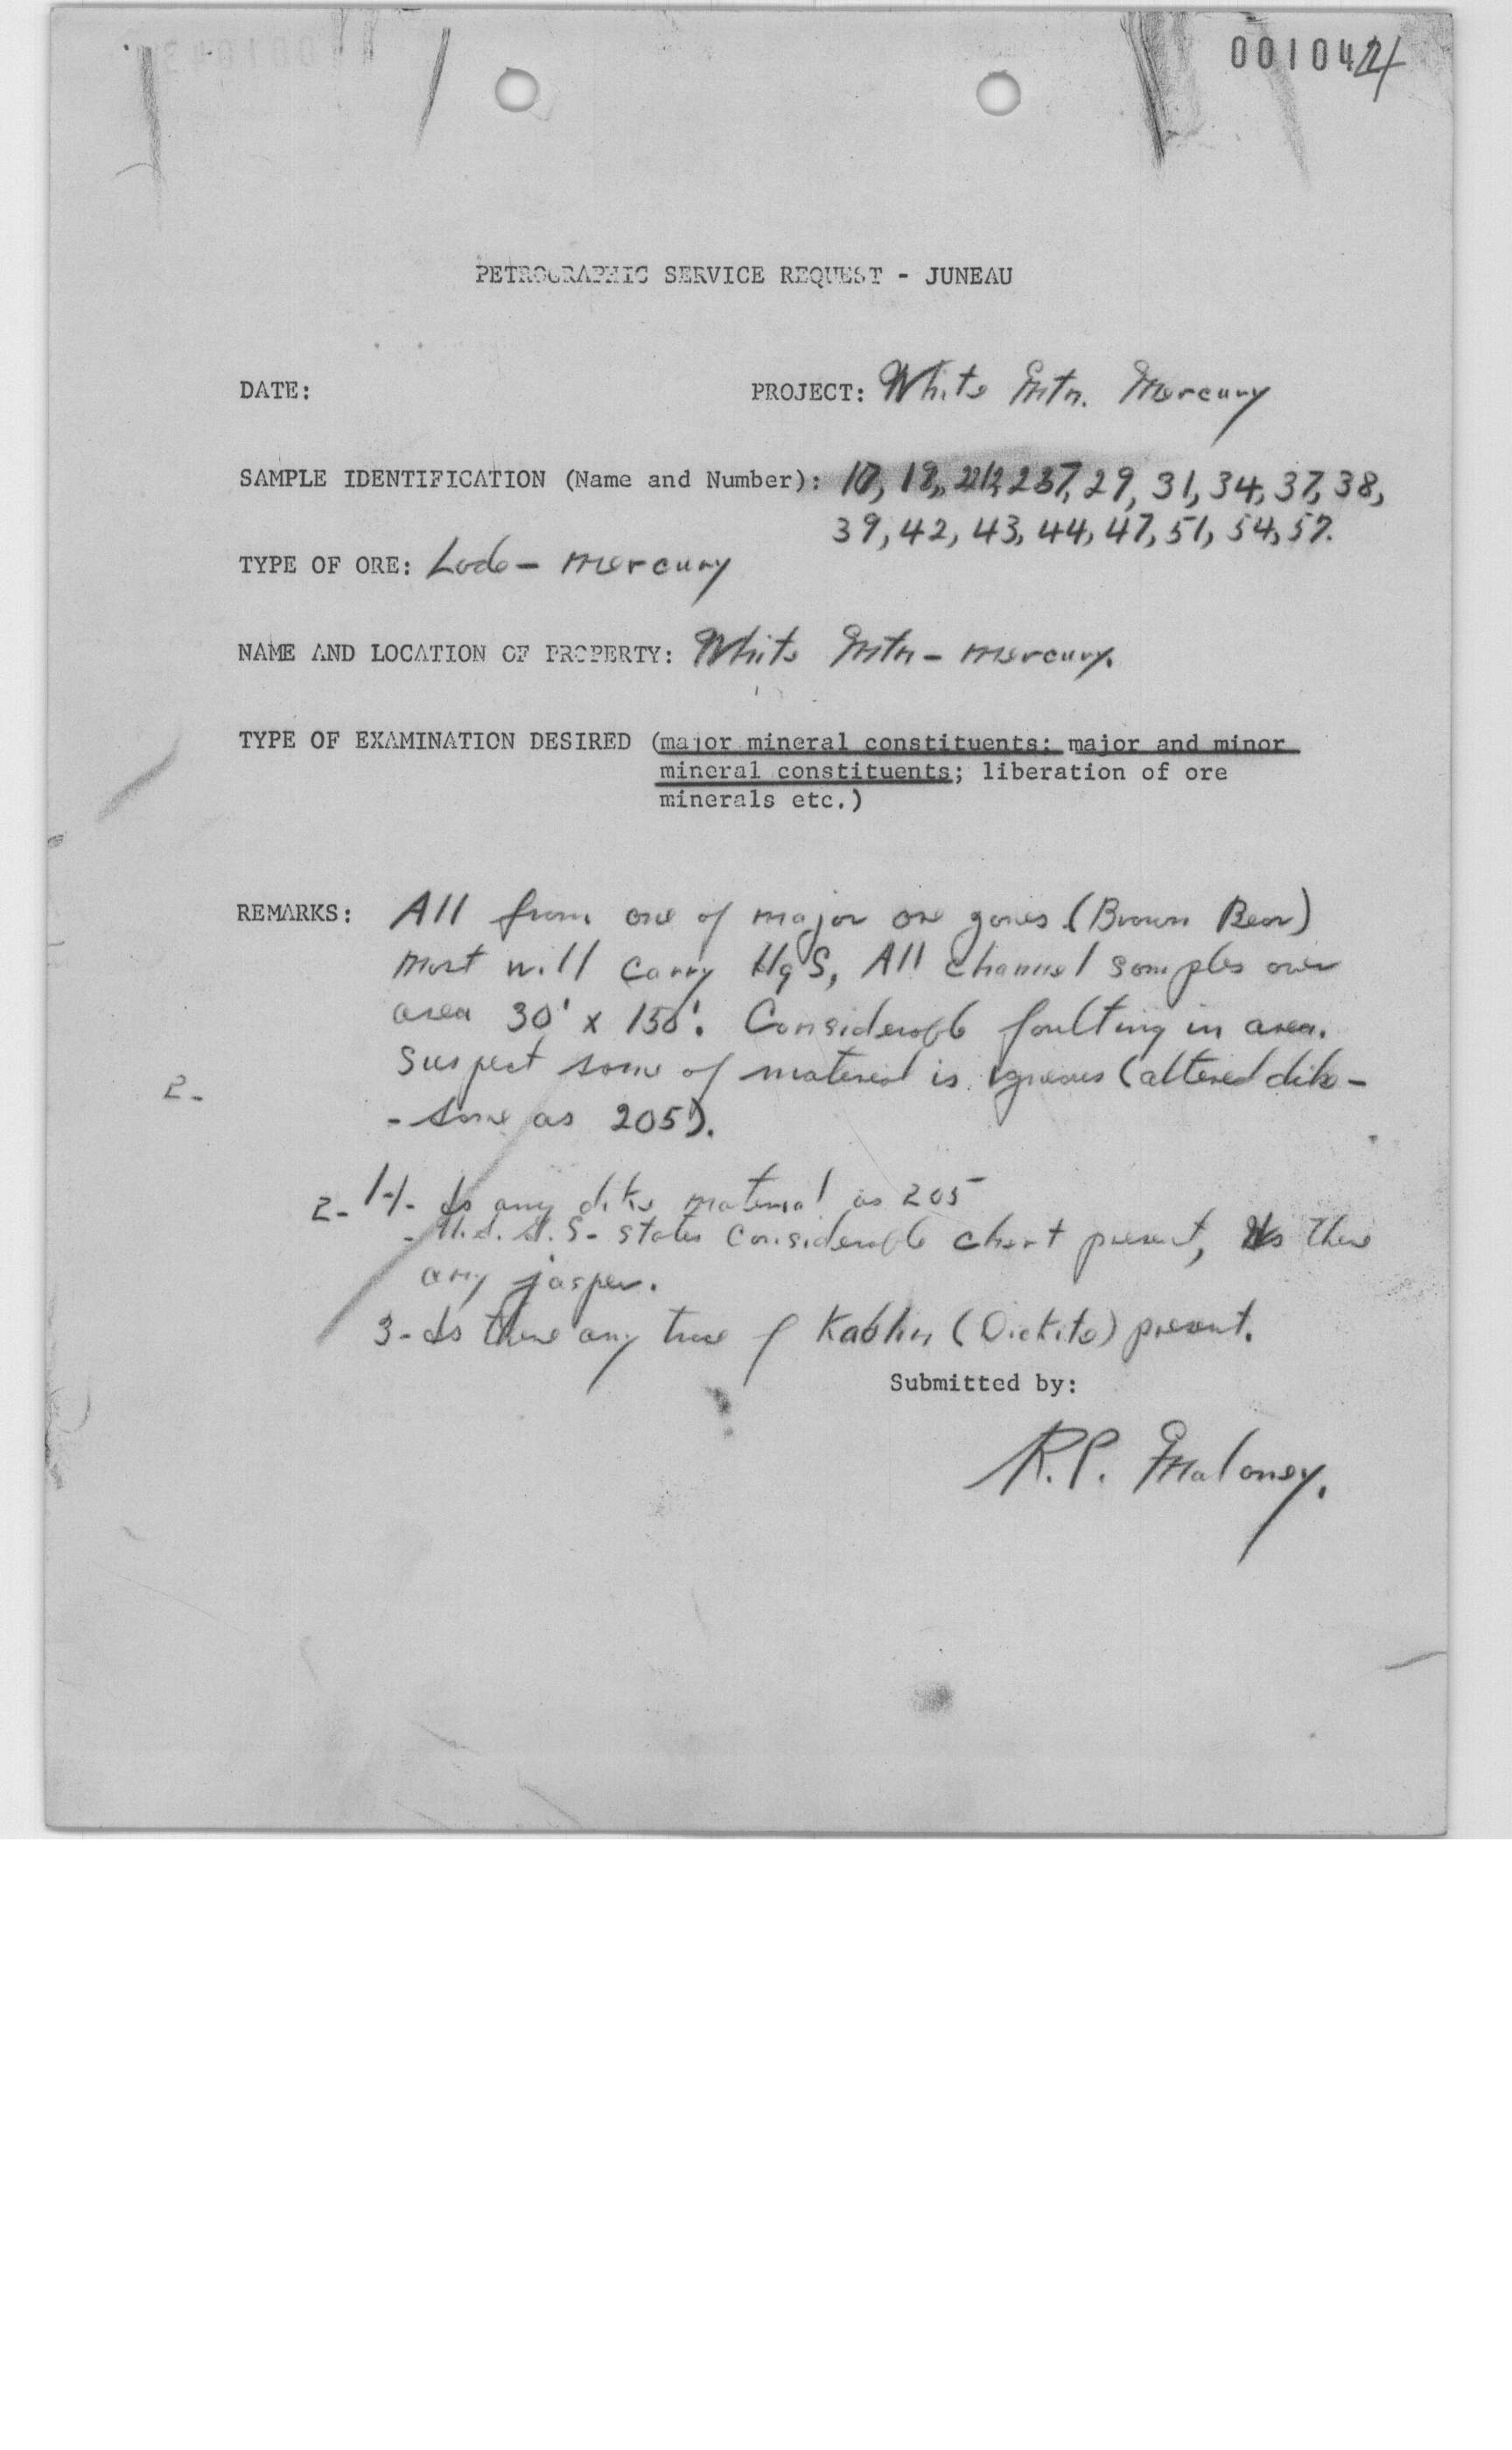 001042
PETROGRAPHIC SERVICE REQUEST - JUNEAU
DATE: PROJECT: White Mtn. Mercury
SAMPLE IDENTIFICATION (Name and Number): 29, 31, 34, 37, 38,
39, 42, 43, 44, 47, 51, 54, 57.
TYPE OF ORE: Lode - Mercury
NAME AND LOCATION OF PROPERTY: White Mtn - Mercury.
TYPE OF EXAMINATION DESIRED (major mineral constituents; major and minor
mineral constituents; liberation of ore
minerals etc.)
REMARKS: All from one of major ore zones (Brown Bear)
Most will carry HgS, All channel samples over
area 30' x 150'. Considerable faulting in area.
Suspect some of material is igneous (altered dike -
2.
- same as 205).
1-1- Is any dike material as 205
2- - U.S.G.S - states considerable chert present, Is there
any jasper.
3- Is there any trace of Kaolin (Dickite) present.
Submitted by:
R.P. Maloney.